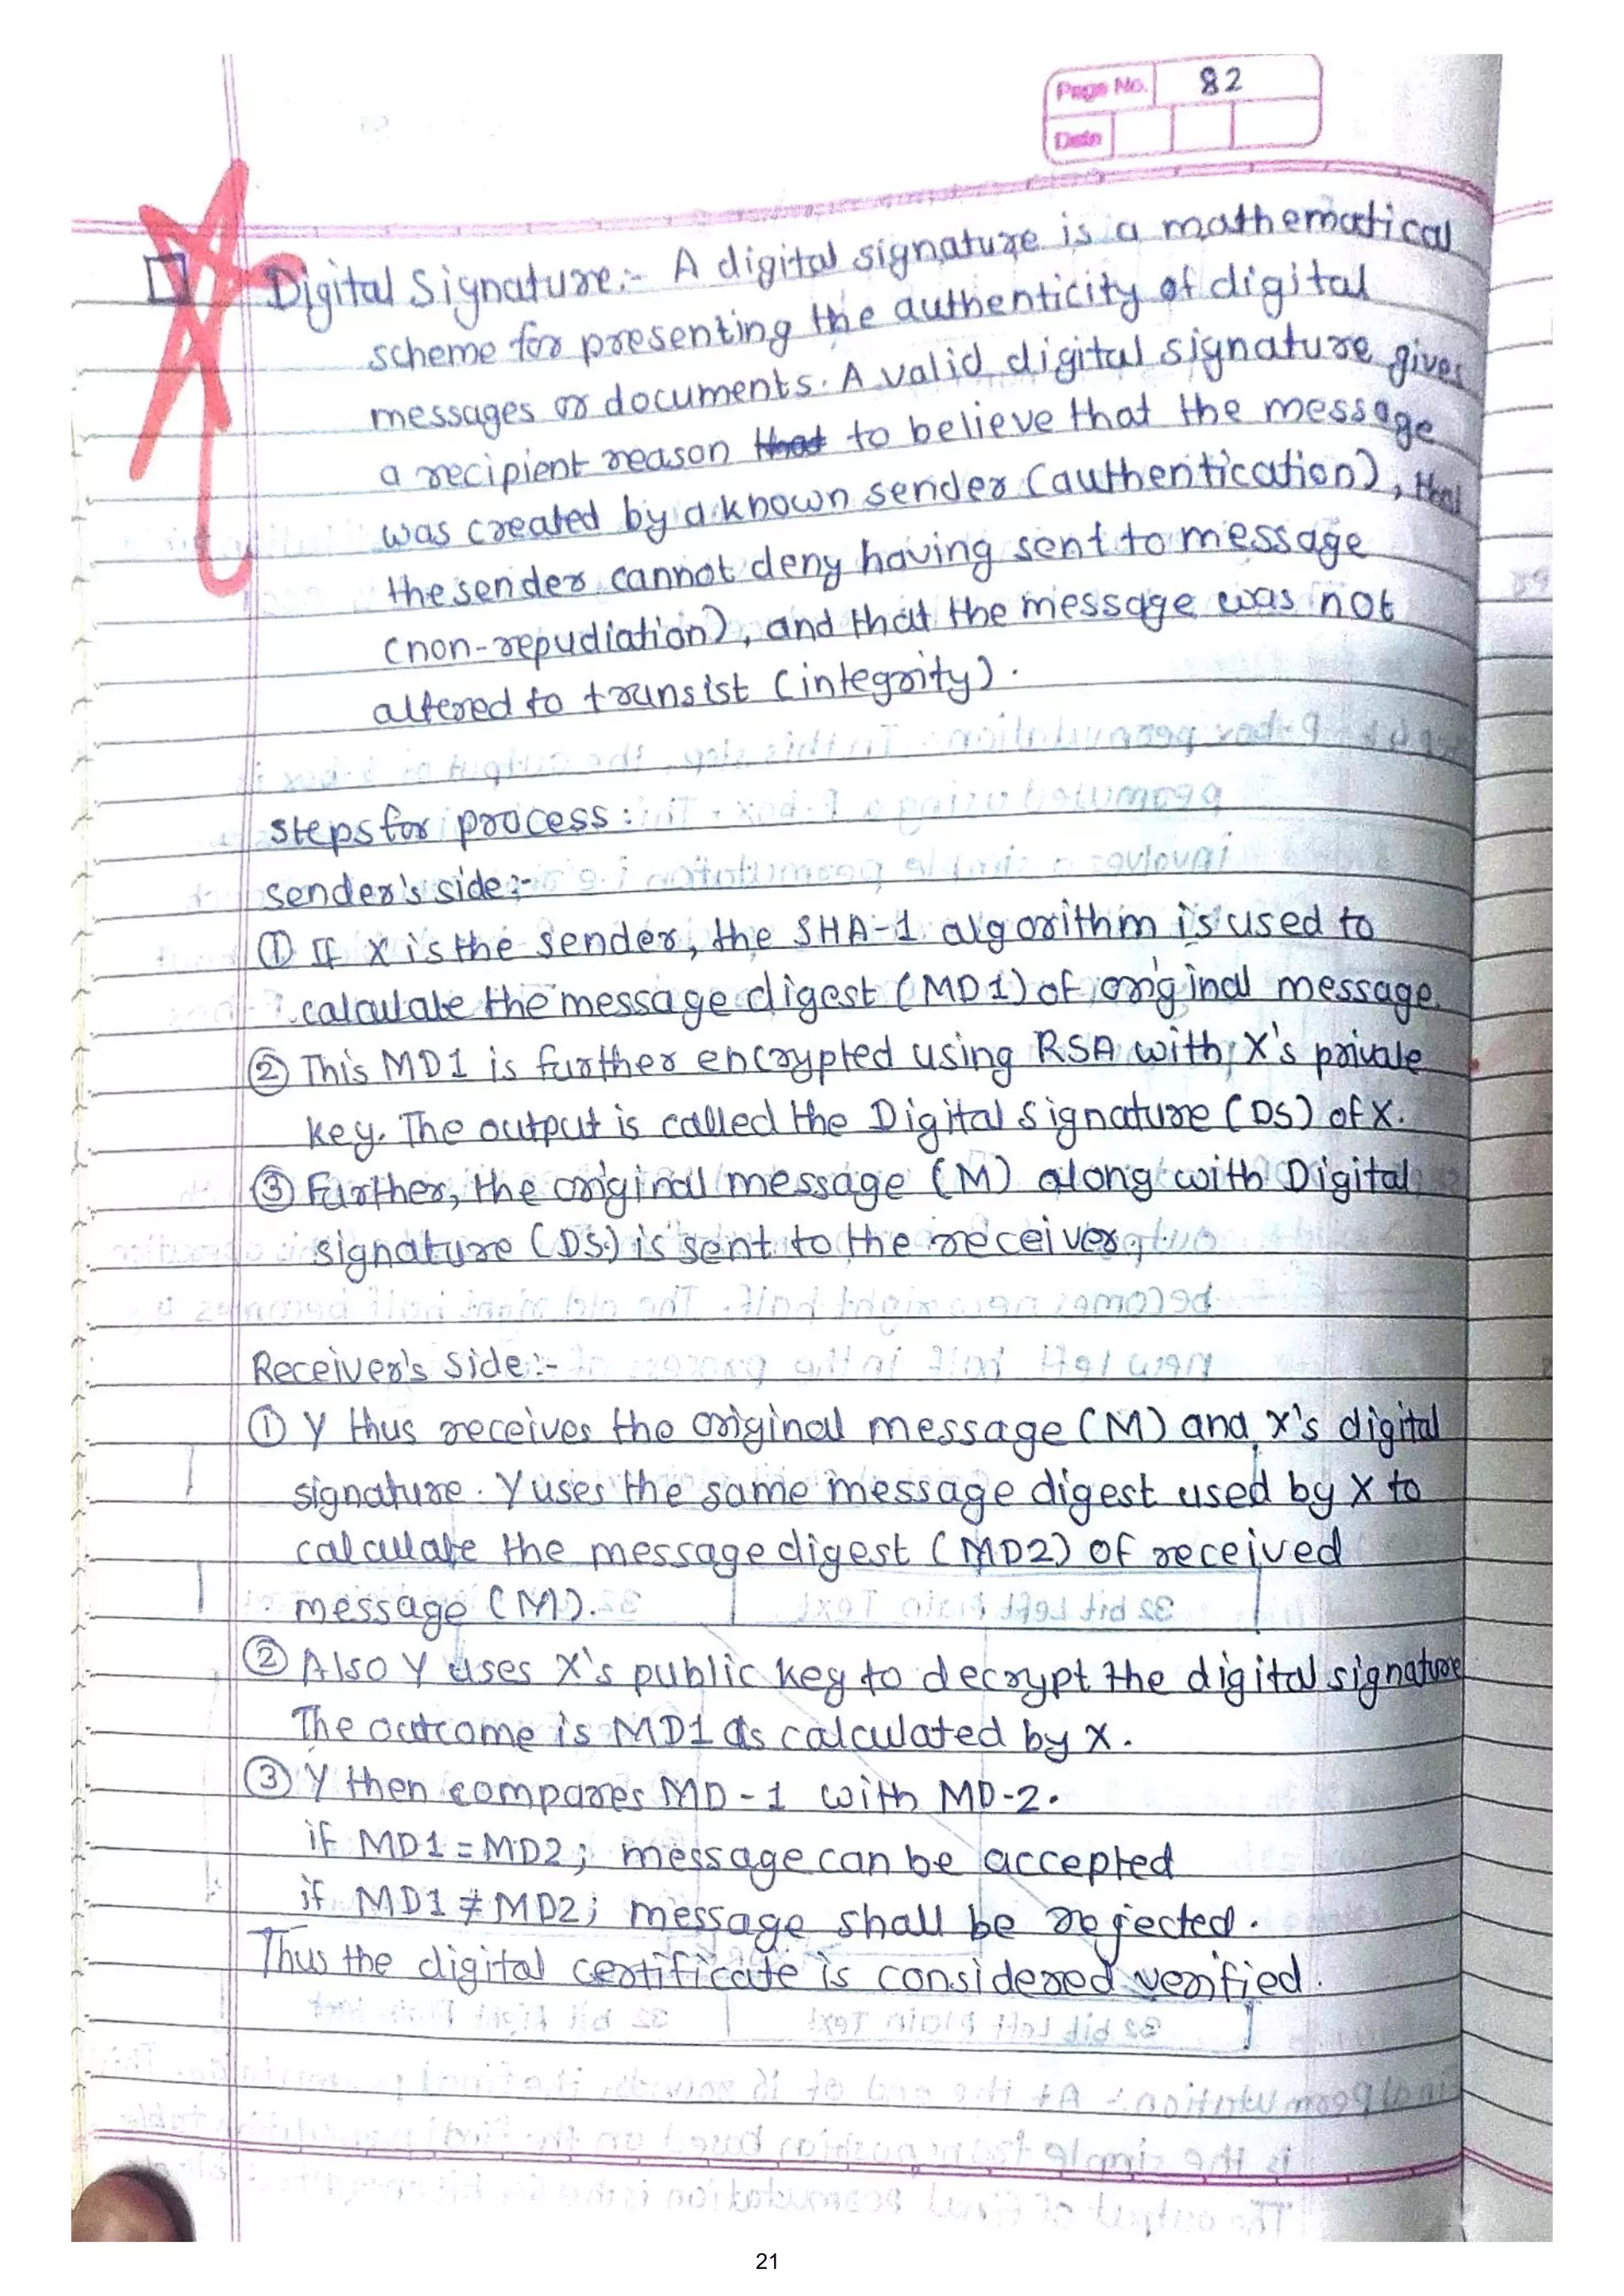 Page No. 82
Date
Digital Signature:- A digital signature is a mathematical
scheme for presenting the authenticity of digital
messages or documents. A valid digital signature gives
a recipient reason that to believe that the message
was created by a known sender (authentication), that
the sender cannot deny having sent to message
(non-repudiation), and that the message was not
altered to transist (integrity).
steps for process:
sender's side:-
① If X is the sender, the SHA-1 algorithm is used to
calculate the message digest (MD1) of original message.
② This MD1 is further encrypted using RSA with X's private
key. The output is called the Digital Signature (DS) of X.
③ Further, the original message (M) along with Digital
signature (DS) is sent to the receiver.
Receiver's side:-
① Y thus receives the original message (M) and X's digital
signature. Y uses the same message digest used by X to
calculate the message digest (MD2) of received
message (M).
② Also Y uses X's public key to decrypt the digital signature
The outcome is MD1 as calculated by X.
③ Y then compares MD-1 with MD-2.
if MD1 = MD2; message can be accepted
if MD1 ≠ MD2; message shall be rejected.
Thus the digital certificate is considered verified.
21